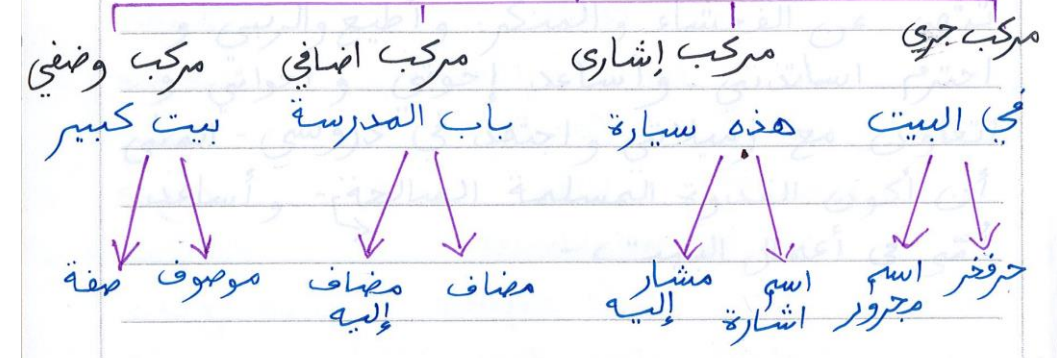 مركب جري مركب إشارى مركب اضافي مركب وضفي
في البيت هذه سيارة باب المدرسة بيت كبير
حرفخر اسم مجرور اسم اشارة مشار إليه مضاف مضاف إليه موصوف صفة